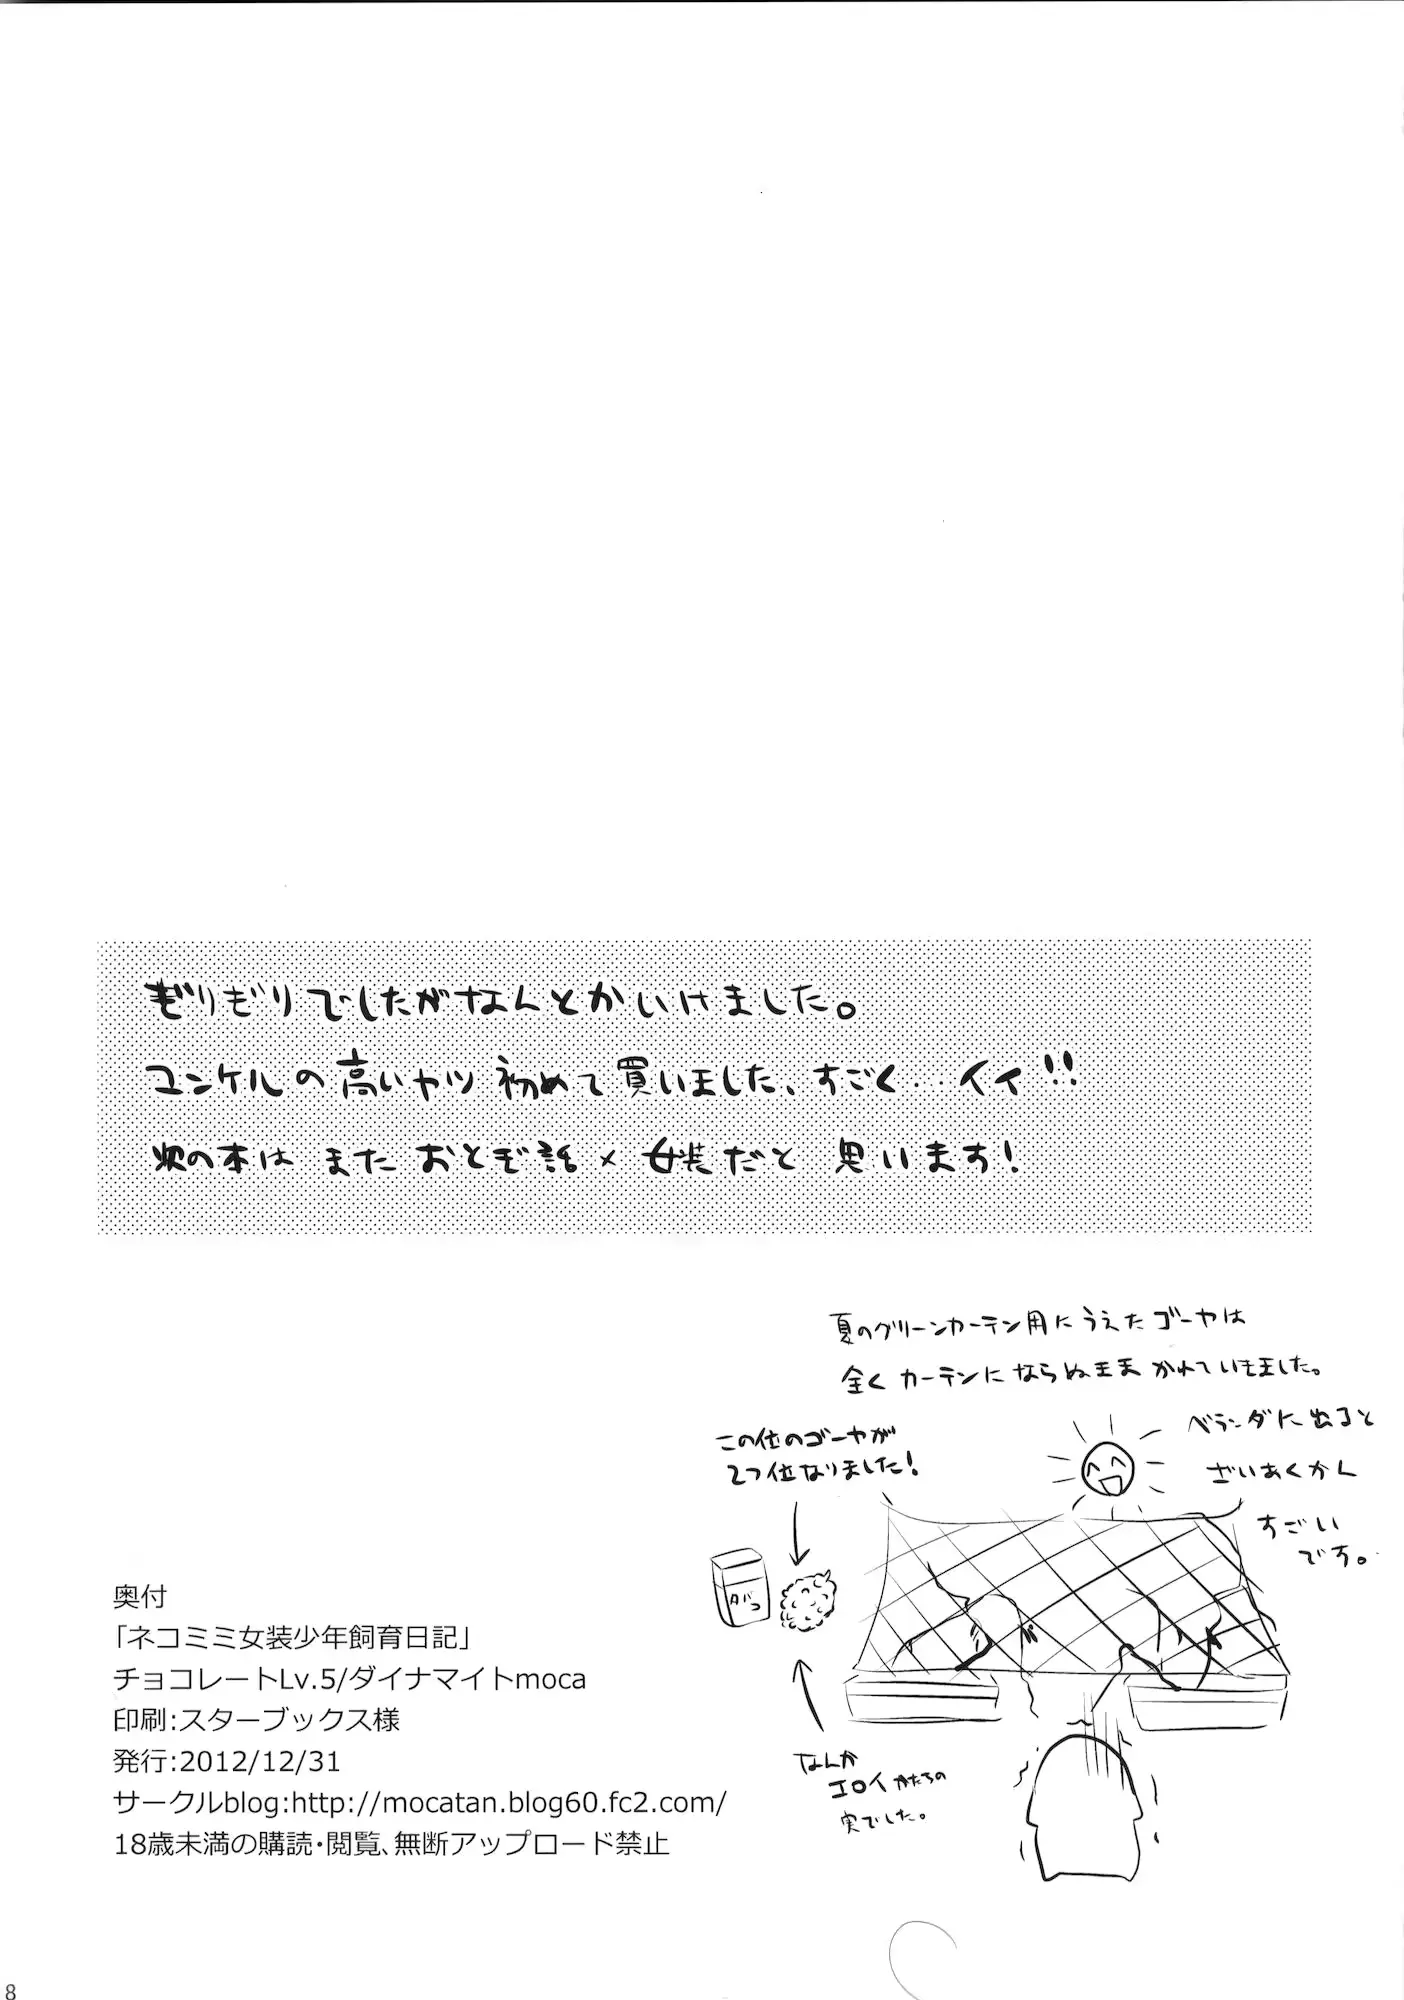 ぎりぎりでしたがなんとかいけました。
ユンケルの高いヤツ 初めて買いました、すごく…イイ!!
次の本は また おとぎ話×女装だと 思います!
夏のグリーンカーテン用にうえたゴーヤは
全くカーテンにならぬまま かれていきました。
ベランダに出ると
ざいあくかん
すごい
です。
この位のゴーヤが
2つ位なりました!
タバコ
なんか
エロイ かたちの
実でした。
奥付
「ネコミミ女装少年飼育日記」
チョコレートLv.5/ダイナマイトmoca
印刷:スターブックス様
発行:2012/12/31
サークルblog:http://mocatan.blog60.fc2.com/
18歳未満の購読・閲覧、無断アップロード禁止
8